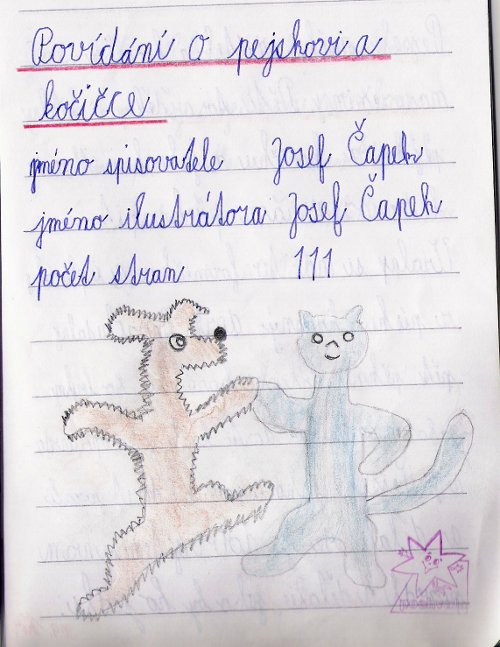 Povídání o pejskovi a
kočičce
jméno spisovatele Josef Čapek
jméno ilustrátora Josef Čapek
počet stran 111